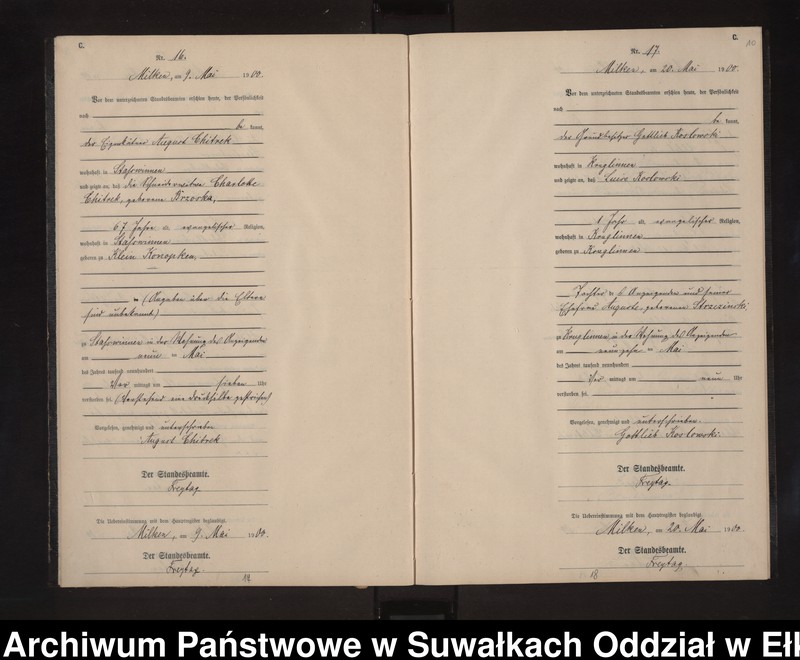 C.
Nr. 16.
Milken, am 9. Mai 1900.
Vor dem unterzeichneten Standesbeamten erschien heute, der Persönlichkeit
nach
be kannt,
der Eigenkätner August Chitrek
wohnhaft in Stassowinnen
und zeigte an, daß die Charlotte
Chitrek, geborene Brzoska,
67 Jahre a. evangelischer Religion,
wohnhaft in Stassowinnen
geboren zu Klein Konopken,
(Angaben über die Eltern
sind unbekannt.)
zu Stassowinnen in der Wohnung des Anzeigenden
am neun ten Mai
des Jahres tausend neunhundert
Vor mittags um sieben Uhr
verstorben sei. (Vorstehend eine Druckseite gestrichen)
Vorgelesen, genehmigt und unterschrieben
August Chitrek
Der Standesbeamte.
Freytag.
Die Uebereinstimmung mit dem Hauptregister beglaubigt.
Milken, am 9. Mai 1900.
Der Standesbeamte.
Freytag.
C.
10
Nr. 17.
Milken, am 20. Mai 1900.
Vor dem unterzeichneten Standesbeamten erschien heute, der Persönlichkeit
nach
be kannt,
der Grundbesitzer Gottlieb Koslowski
wohnhaft in Konglinnen
und zeigte an, daß Luise Koslowski
1 Jahr a. evangelischer Religion,
wohnhaft in Konglinnen
geboren zu Konglinnen
Tochter des Anzeigenden und seiner
Ehefrau Auguste, geborenen
zu Konglinnen in der Wohnung des Anzeigenden
am neunzehn ten Mai
des Jahres tausend neunhundert
Vor mittags um neun Uhr
verstorben sei.
Vorgelesen, genehmigt und unterschrieben.
Gottlieb Koslowski.
Der Standesbeamte.
Freytag.
Die Uebereinstimmung mit dem Hauptregister beglaubigt.
Milken, am 20. Mai 1900.
Der Standesbeamte.
Freytag.
18
Archiwum Państwowe w Suwałkach Oddział w Ełk